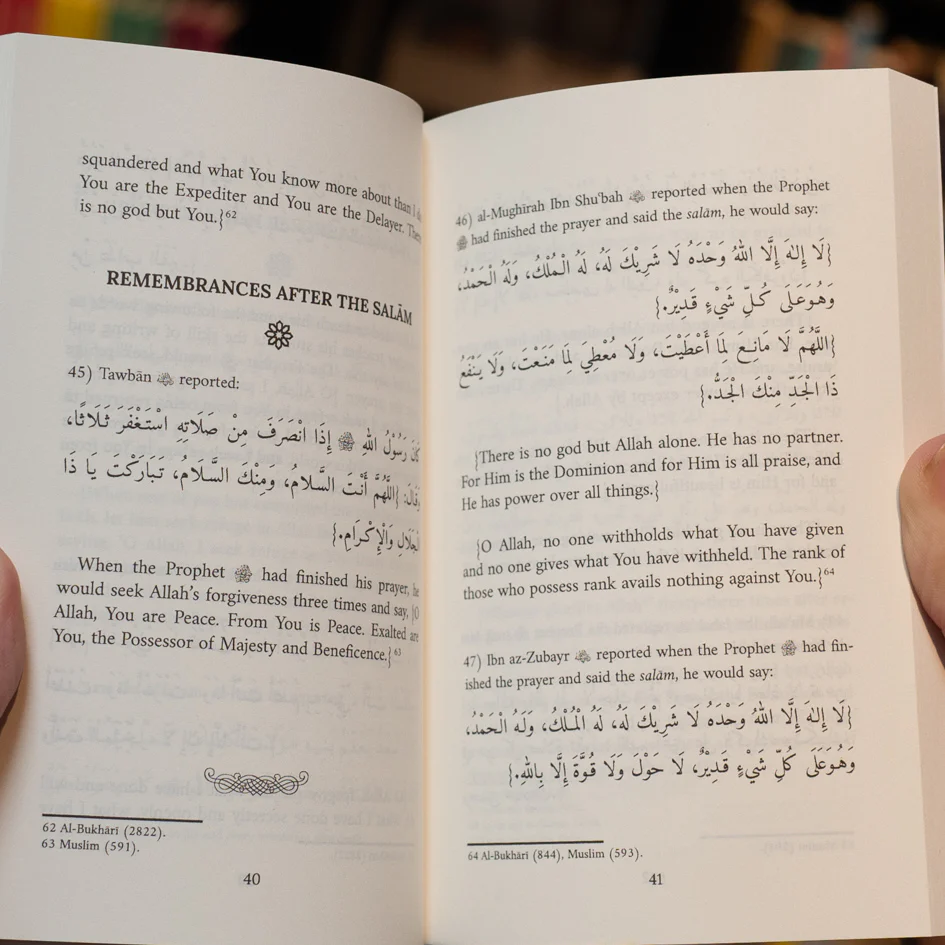 squandered and what You know more about than I
You are the Expediter and You are the Delayer. There
is no god but You.}62
REMEMBRANCES AFTER THE SALĀM
45) Tawbān reported:
كَانَ رَسُوْلُ اللهِ ﷺ إِذَا انْصَرَفَ مِنْ صَلَاتِهِ اسْتَغْفَرَ ثَلَاثًا،
وَقَالَ: {اللَّهُمَّ أَنْتَ السَّلَامُ، وَمِنْكَ السَّلَامُ، تَبَارَكْتَ يَا ذَا
الْجَلَالِ وَالْإِكْرَامِ.}
When the Prophet ﷺ had finished his prayer, he
would seek Allah's forgiveness three times and say, {O
Allah, You are Peace. From You is Peace. Exalted are
You, the Possessor of Majesty and Beneficence.}63
62 Al-Bukhārī (2822).
63 Muslim (591).
40
46) al-Mughīrah Ibn Shu'bah reported when the Prophet
ﷺ had finished the prayer and said the salām, he would say:
{لَا إِلٰهَ إِلَّا اللهُ وَحْدَهُ لَا شَرِيْكَ لَهُ، لَهُ الْمُلْكُ، وَلَهُ الْحَمْدُ،
وَهُوَعَلَى كُلِّ شَيْءٍ قَدِيْرٌ.}
{اللَّهُمَّ لَا مَانِعَ لِمَا أَعْطَيْتَ، وَلَا مُعْطِيَ لِمَا مَنَعْتَ، وَلَا يَنْفَعُ
ذَا الْجَدِّ مِنْكَ الْجَدُّ.}
{There is no god but Allah alone. He has no partner.
For Him is the Dominion and for Him is all praise, and
He has power over all things.}
{O Allah, no one withholds what You have given
and no one gives what You have withheld. The rank of
those who possess rank avails nothing against You.}64
47) Ibn az-Zubayr reported when the Prophet ﷺ had fin-
ished the prayer and said the salām, he would say:
{لَا إِلٰهَ إِلَّا اللهُ وَحْدَهُ لَا شَرِيْكَ لَهُ، لَهُ الْمُلْكُ، وَلَهُ الْحَمْدُ،
وَهُوَعَلَى كُلِّ شَيْءٍ قَدِيْرٌ، لَا حَوْلَ وَلَا قُوَّةَ إِلَّا بِاللهِ.}
64 Al-Bukhārī (844), Muslim (593).
41